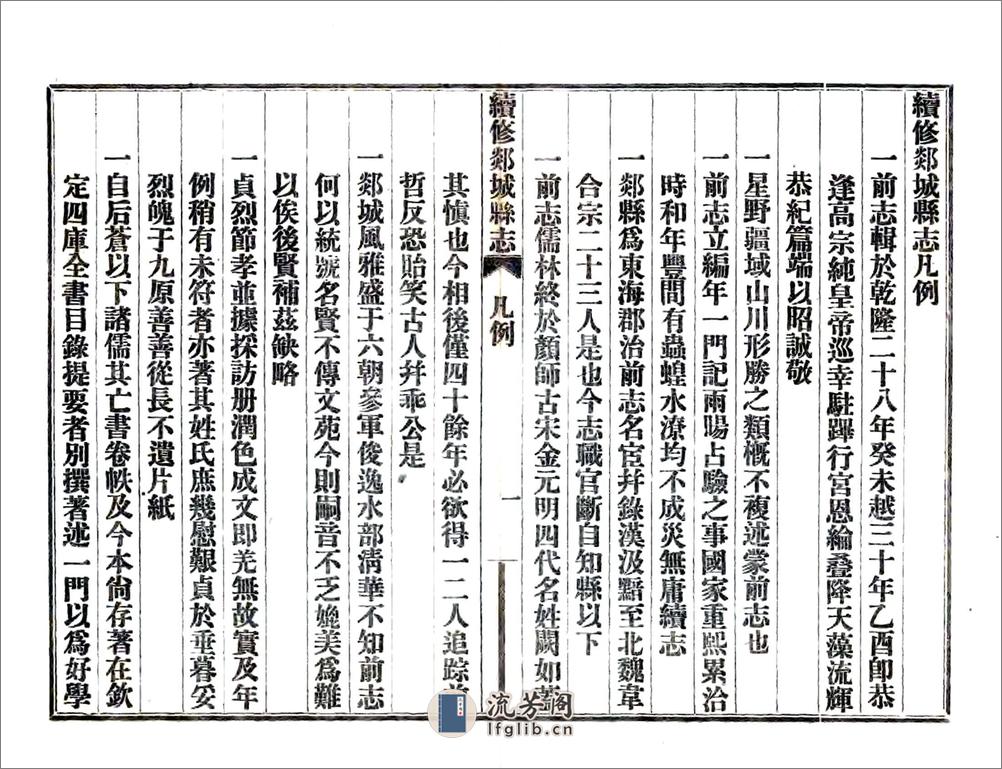 續修郯城縣志凡例
一前志輯於乾隆二十八年癸未越三十年乙酉卽恭
逢高宗純皇帝巡幸駐蹕行宮恩綸叠降天藻流輝
恭紀篇端以昭誠敬
一星野疆域山川形勝之類槪不複述蒙前志也
一前志立編年一門記雨暘占驗之事國家重熙累治
時和年豐間有蟲蝗水潦均不成災無庸續志
一郯縣爲東海郡治前志名宦幷錄漢汲黯至北魏韋
合宗二十三人是也今志職官斷自知縣以下
一前志儒林終於顏師古宋金元明四代名姓闕如葢
續修郯城縣志
凡例
一
其愼也今相後僅四十餘年必欲得一二人追踪前
哲反恐貽笑古人幷乖公是
一郯城風雅盛于六朝參軍俊逸水部淸華不知前志
何以統號名賢不傳文苑今則嗣音不乏媲美爲難
以俟後賢補茲缺略
一貞烈節孝並據採訪册潤色成文卽羌無故實及年
例稍有未符者亦著其姓氏庶幾慰艱貞於垂暮妥
烈魄于九原善善從長不遺片紙
一自后蒼以下諸儒其亡書卷帙及今本尙存著在欽
定四庫全書目錄提要者別撰著述一門以爲好學
流芳閣
lfglib.cn